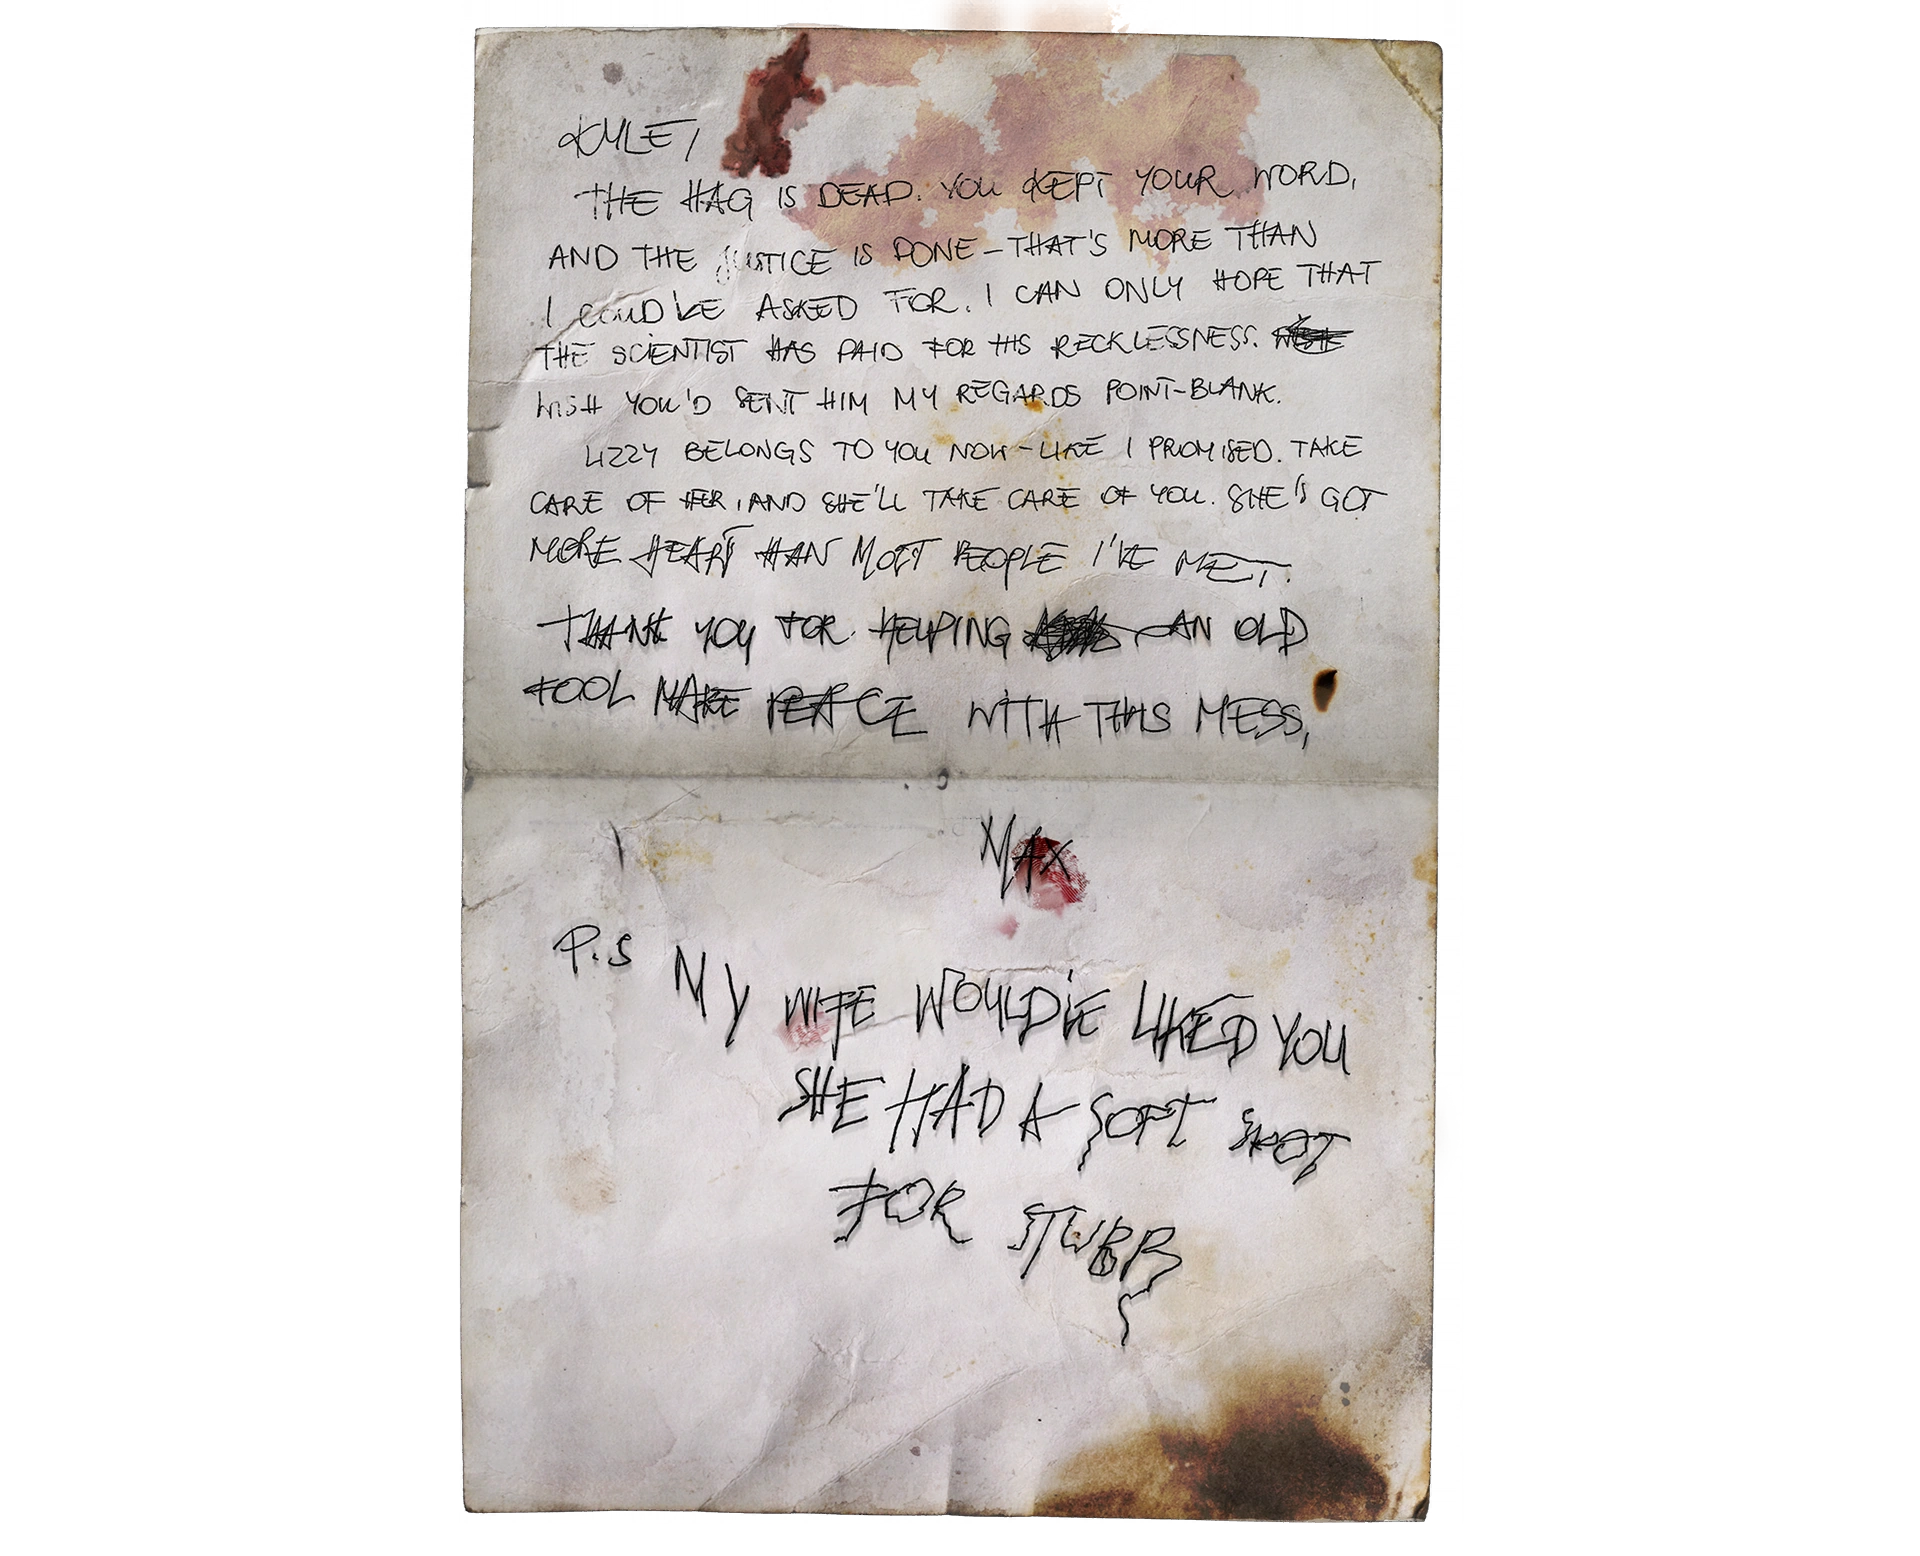 KYLE,
THE HAG IS DEAD. YOU KEPT YOUR WORD,
AND THE JUSTICE IS DONE - THAT'S MORE THAN
I COULD'VE ASKED FOR. I CAN ONLY HOPE THAT
THE SCIENTIST HAS PAID FOR HIS RECKLESSNESS.
WISH YOU'D SENT HIM MY REGARDS POINT-BLANK.
LIZZY BELONGS TO YOU NOW - LIKE I PROMISED. TAKE
CARE OF HER, AND SHE'LL TAKE CARE OF YOU. SHE'S GOT
MORE HEART THAN MOST PEOPLE I'VE MET.
THANK YOU FOR HELPING AN OLD
FOOL MAKE PEACE WITH THIS MESS,
MAX
P.S MY WIFE WOULD'VE LIKED YOU
SHE HAD A SOFT SPOT
FOR STUBB